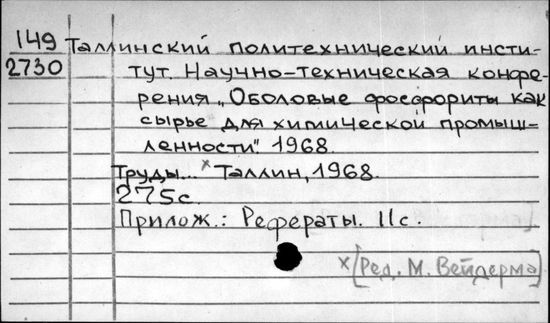 149 Таллинский политехнический инсти-
2730 тут. Научно-техническая конфе-
рения „Оболовые фосфориты как
сырье для химической промыш-
ленности". 1968.
Труды... × Таллин, 1968.
275с.
Прилож.: Рефераты. 11с.
×[Ред. М. Вейдерма]